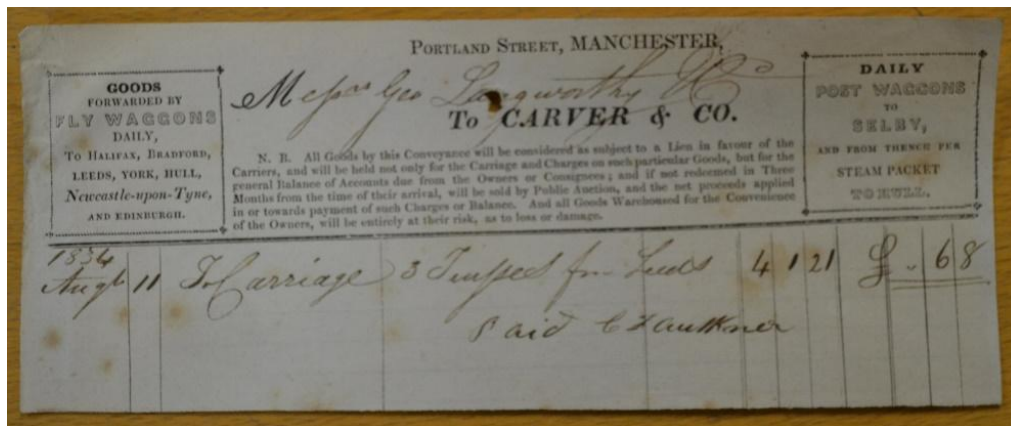 PORTLAND STREET, MANCHESTER,
GOODS
FORWARDED BY
FLY WAGGONS
DAILY,
TO HALIFAX, BRADFORD,
LEEDS, YORK, HULL,
Newcastle-upon-Tyne,
AND EDINBURGH.
Messrs Geo Langworthy & Co
To CARVER & CO.
N. B. All Goods by this Conveyance will be considered as subject to a Lien in favour of the
Carriers, and will be held not only for the Carriage and Charges on such particular Goods, but for the
general Balance of Accounts due from the Owners or Consignees; and if not redeemed in Three
Months from the time of their arrival, will be sold by Public Auction, and the net proceeds applied
in or towards payment of such Charges or Balance. And all Goods Warehoused for the Convenience
of the Owners, will be entirely at their risk, as to loss or damage.
DAILY
POST WAGGONS
TO
SELBY,
AND FROM THENCE PER
STEAM PACKET
TO HULL.
1834
Augt 11 To Carriage 3 fm Leeds 4 1 21 £ " 6 8
Paid C Faulkner